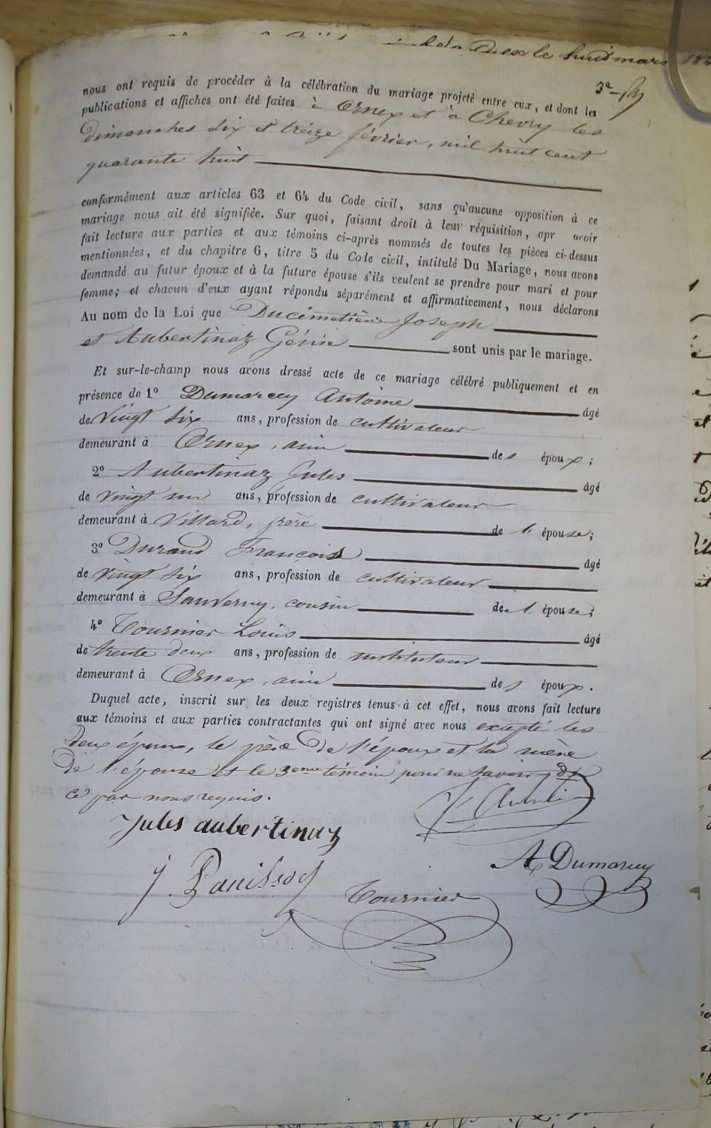 le huit mars 184
3e
nous ont requis de procéder à la célébration du mariage projeté entre eux, et dont les
publications et affiches ont été faites à Ornex et à Chevry les
dimanches six et treize février, mil huit cent
quarante huit
conformément aux articles 63 et 64 du Code civil, sans qu'aucune opposition à ce
mariage nous ait été signifiée. Sur quoi, faisant droit à leur réquisition, apr avoir
fait lecture aux parties et aux témoins ci-après nommés de toutes les pièces ci-dessus
mentionnées, et du chapitre 6, titre 5 du Code civil, intitulé Du Mariage, nous avons
demandé au futur époux et à la future épouse s'ils veulent se prendre pour mari et pour
femme; et chacun d'eux ayant répondu séparément et affirmativement, nous déclarons
Au nom de la Loi que Ducimetière Joseph
et Aubertinaz Génie sont unis par le mariage.
Et sur-le-champ nous avons dressé acte de ce mariage célébré publiquement et en
présence de 1o Dumarcey Antoine âgé
de vingt six ans, profession de cultivateur
demeurant à Ornex, ami de l époux;
2o Aubertinaz Jules âgé
de vingt un ans, profession de cultivateur
demeurant à Villard, frère de l' épouse;
3o Durand François âgé
de vingt six ans, profession de cultivateur
demeurant à Sauverny, cousin de l épouse;
4o Tournier Louis âgé
de trente deux ans, profession de instituteur
demeurant à Ornex, ami de l époux.
Duquel acte, inscrit sur les deux registres tenus à cet effet, nous avons fait lecture
aux témoins et aux parties contractantes qui ont signé avec nous excepté les
deux époux, le père de l'époux et la mère
de l'épouse et le 3eme témoin pour ne savoir
ce par nous requis.
Jules aubertinaz
A Dumarcey
J. Panissod
Tournier